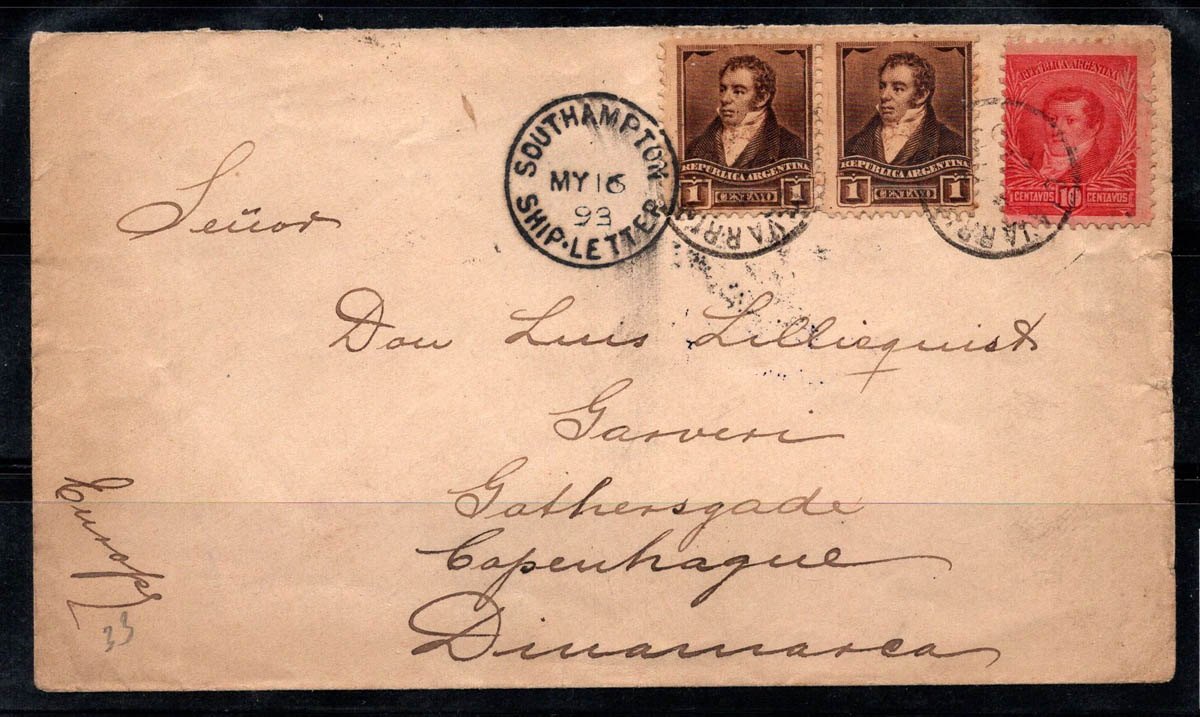 SOUTHAMPTON
MY 16
93
SHIP·LETTER
REPUBLICA ARGENTINA
1 CENTAVO 1
REPUBLICA ARGENTINA
1 CENTAVO 1
REPUBLICA ARGENTINA
CENTAVOS 10 CENTAVOS
Señor
Don Luis Lillisquist
Garveri
Gothersgade
Copenhague
Dinamarca
Europa
33